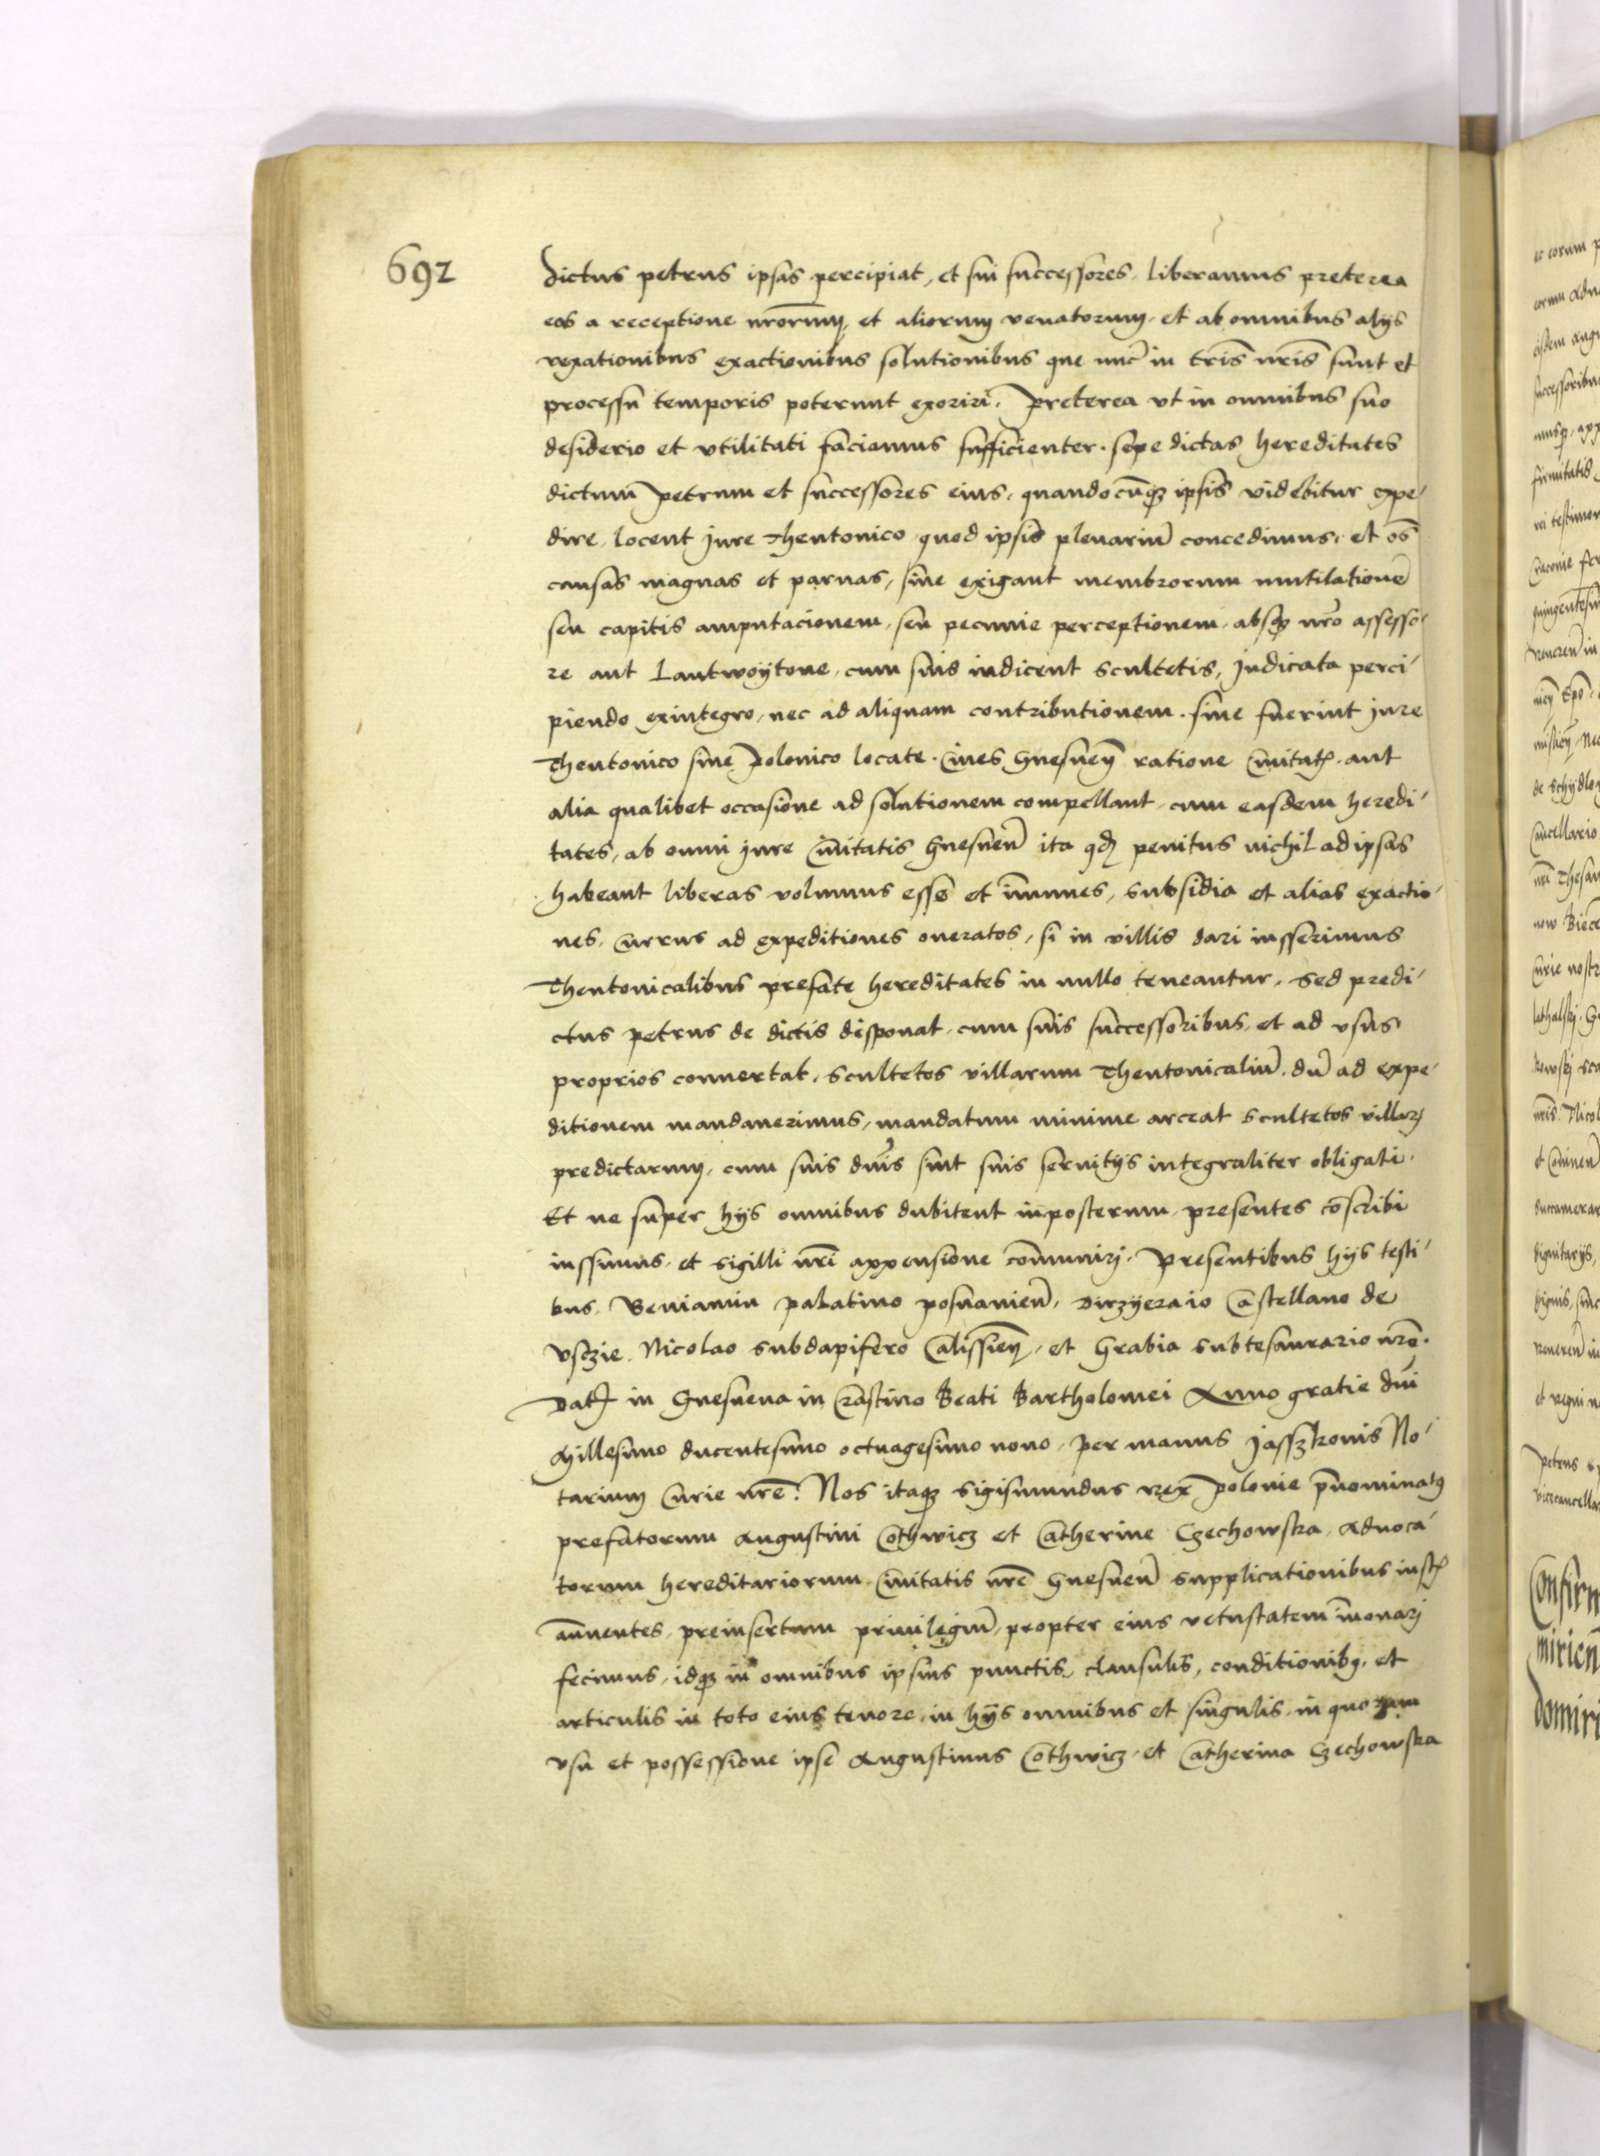 692
dictus petrus ipsas percipiat, et sui successores. liberamus preterea
eos a receptione nrorum, et aliorum venatorum. et ab omnibus alijs
vexationibus exactionibus solutionibus que nunc in tris nris sunt et
processu temporis poterunt exoriri. Preterea vt in omnibus suo
desiderio et vtilitati faciamus sufficienter. sepe dictas hereditates
dictum Petrum et successores eius, quandocunq ipsis videbitur expe-
dire, locent Jure Theutonico quod ipsis plenarium concedimus. et oes
causas magnas et paruas, siue exigant membrorum mutilationem
seu capitis amputacionem, seu pecunie perceptionem, absq nro assesso-
re aut Lantwoytone, cum suis iudicent scultetis, Judicata perci-
piendo exintegro, nec ad aliquam contributionem. siue fuerint Jure
Theutonico siue Polonico locate. Ciues Gnesnen ratione Ciuitat. aut
alia qualibet occasione ad solutionem compellant, cum easdem heredi-
tates, ab omni Jure Ciuitatis Gnesnen ita qd penitus nichil ad ipsas
habeant liberas volumus esse et immunes, subsidia et alias exactio-
nes, Currus ad expeditiones oneratos, si in villis dari iusserimus
Theutonicalibus prefate hereditates in nullo teneantur. Sed predi-
ctus Petrus de dictis disponat cum suis successoribus, et ad vsus
proprios conuertat. Scultetos villarum Theutonicalium, dum ad expe-
ditionem mandauerimus, mandatum minime arceat scultetos villarum
predictarum, cum suis dnis sint suis seruitijs integraliter obligati.
Et ne super hijs omnibus dubitent inposterum, presentes conscribi
iussimus, et sigilli nri appensione communiri. Presentibus hijs testi-
bus. Beniamin palatino posnanien, Dirzyeraio Castellano de
vsczie. Nicolao subdapifero Calissien, et Grabia subtesaurario nre.
Dat in Gnesnena in Crastino Beati Bartholomei Anno gratie dni
Millesimo ducentesimo octuagesimo nono, per manus Jasszkonis No-
tarium Curie nre. Nos itaq Sigismundus Rex Polonie prenominatus
prefatorum Augustini Cothwicz et Catherine Czechowska, Aduoca-
torum hereditariorum Ciuitatis nre Gnesnen supplicationibus iust
annuentes, preinsertum priuilegium, propter eius vetustatem innouari
fecimus, idq in omnibus ipsius punctis, clausulis, conditionibus, et
articulis in toto eius tenore, in hijs omnibus et singulis, in quorum
vsu et possessione ipse Augustinus Cothwicz, et Catherina Czechowska